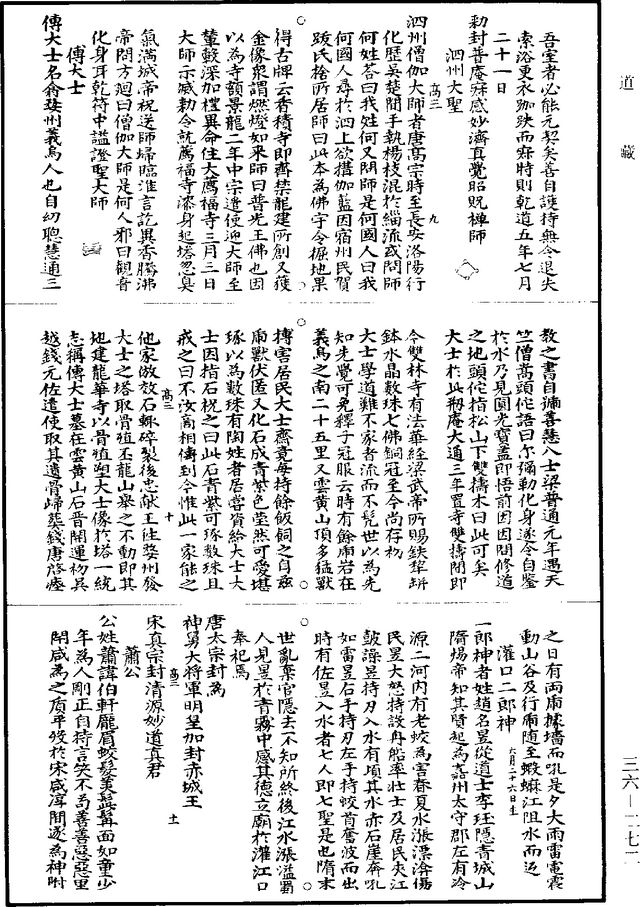 道藏
吾室者必能元契矣善自護持無令退失
索浴更衣跏趺而寂時則乾道五年七月
二十一日
勑封普庵寂感妙濟真覺昭貺禪師
泗州大聖
高三
九
泗州僧伽大師者唐高宗時至長安洛陽行
化歷吳楚間手執楊枝混於緇流或問師
何姓答曰我姓何又問師是何國人曰我
何國人尋於泗上欲搆伽藍因宿州民賀
跋氏捨所居師曰此本為佛宇令掘地果
得古牌云香積寺即齊李龍建所創又獲
金像衆謂燃燈如來師曰普光王佛也因
以為寺額景龍二年中宗遣使迎大師至
輦轂深加禮異命住大薦福寺三月三日
大師示滅勅令就薦福寺漆身起塔忽臭
氣滿城帝祝送師歸臨淮言訖異香騰沸
帝問萬迴曰僧伽大師是何人邪曰觀音
化身耳乾符中謚證聖大師
傅大士
傅大士名翕婺州義烏人也自幼聰慧通三
教之書自號善慧大士梁普通元年遇天
竺僧嵩頭陀語曰爾彌勒化身遂令自鑒
於水乃見圓光寶蓋即悟前因因問修道
之地頭陀指松山下雙擣木曰此可矣
大士於此刱庵大通三年置寺雙擣間即
今雙林寺有法華經梁武帝所賜鉄犂研
鉢水晶數珠七佛銅冠至今尚存初
大士學道難不家者流而不髡世以為先
知先覺可免釋子冠服云時有餘雨岩在
義烏之南二十五里又雲黄山頂多猛獸
搏害居民大士齋竟每持餘飯飼之自兹
雨獸伏匿又化石成青紫色瑩然可愛堪
琢以為數珠有陶姓者居嘗資給大士大
士因指石祝之曰此石青紫可琢數珠且
戒之曰不汝商相傳到今惟此一家能之
他家倣效石輒碎裂後忠献王任婺州發
高三
十
大士之塔取骨殖丕龍山舉之不動即其
地建龍華寺以骨殖塑大士像於塔一統
志稱傅大士墓在雲黄山石晋開運初吳
越錢元佐遣使取其遺骨歸葬錢唐啓瘞
之日有兩虎據墻而吼是夕大雨雷電震
動山谷及行雨随至蝦蟆江阻水而返
灌口二郎神
六月二十六日生
一郎神者姓趙名昱從道士李珏隱青城山
隋煬帝知其賢起為嘉州太守郡左有冷
源二河内有老蛟為害春夏水漲漂渰傷
民昱大怒持設舟船率壯士及居民夹江
鼓譟昱持刀入水有頃其水赤石崖奔吼
如雷昱右手持刃左手持蛟首奮波而出
時有佐昱入水者七人即七聖是也隋末
世亂棄官隱去不知所終後江水漲溢蜀
人見昱於青霧中感其德立廟於灌江口
奉祀焉
唐太宗封為
神勇大將軍明皇加封赤城王
高三
土
宋真宗封清源妙道真君
蕭公
公姓蕭諱伯軒龎眉蛟髮美髭髯面如童少
年為人剛正自持言笑不苟善善惡惡里
閈咸為之質平殁於宋咸淳間遂為神附
三六—二七二